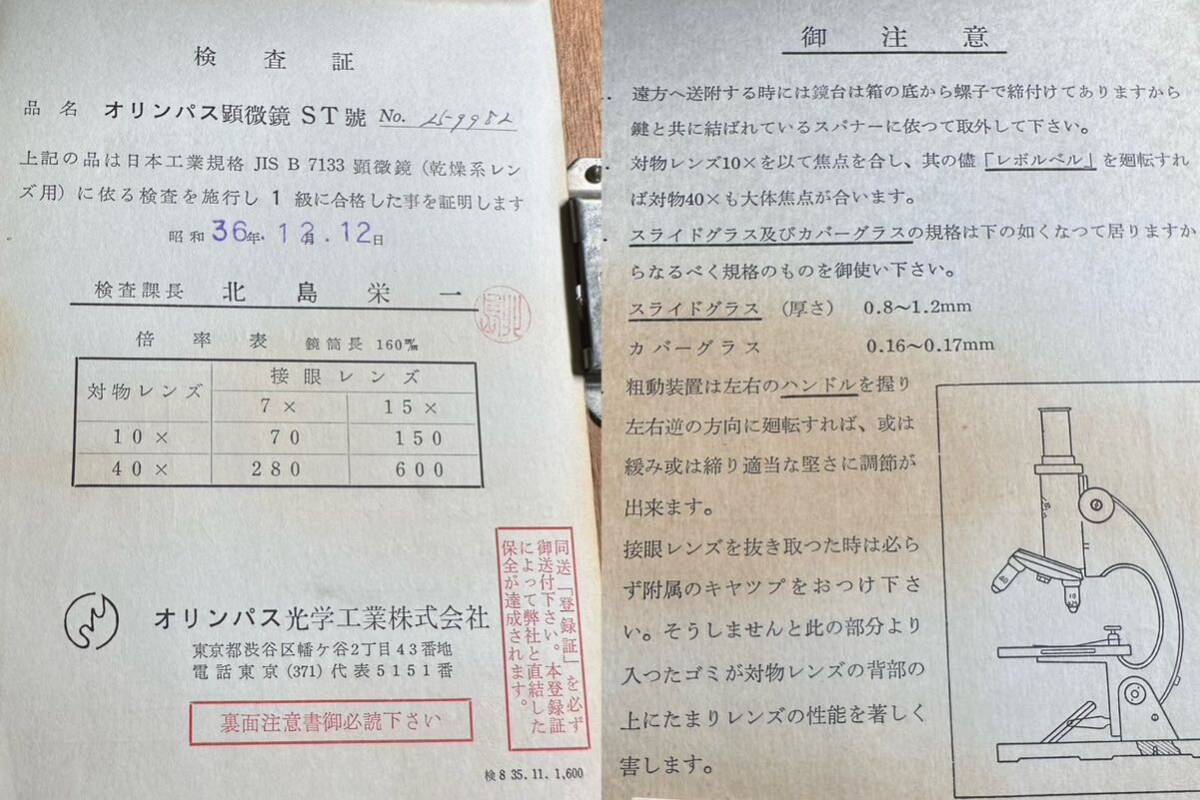 検査証
品名 オリンパス顕微鏡 ST號 No. 259982
上記の品は日本工業規格 JIS B 7133 顕微鏡(乾燥系レン
ズ用)に依る検査を施行し 1 級に合格した事を証明します
昭和 36年 12月 12日
検査課長 北島栄一
倍率表 鏡筒長 160㎜
対物レンズ 接眼レンズ
7× 15×
10× 70 150
40× 280 600
同送「登録証」を必ず
御送付下さい。本登録証
によって弊社と直結した
保全が達成されます。
オリンパス光学工業株式会社
東京都渋谷区幡ケ谷2丁目43番地
電話東京(371)代表5151番
裏面注意書御必読下さい
検8 35.11.1,600
御注意
遠方へ送附する時には鏡台は箱の底から螺子で締付けてありますから
鍵と共に結ばれているスパナーに依つて取外して下さい。
対物レンズ10×を以て焦点を合し、其の儘「レボルベル」を廻転すれ
ば対物40×も大体焦点が合います。
スライドグラス及びカバーグラスの規格は下の如くなつて居りますか
らなるべく規格のものを御使い下さい。
スライドグラス (厚さ) 0.8〜1.2mm
カバーグラス 0.16〜0.17mm
粗動装置は左右のハンドルを握り
左右逆の方向に廻転すれば、或は
緩み或は締り適当な堅さに調節が
出来ます。
接眼レンズを抜き取つた時は必ら
ず附属のキヤツプをおつけ下さ
い。そうしませんと此の部分より
入つたゴミが対物レンズの背部の
上にたまりレンズの性能を著しく
害します。